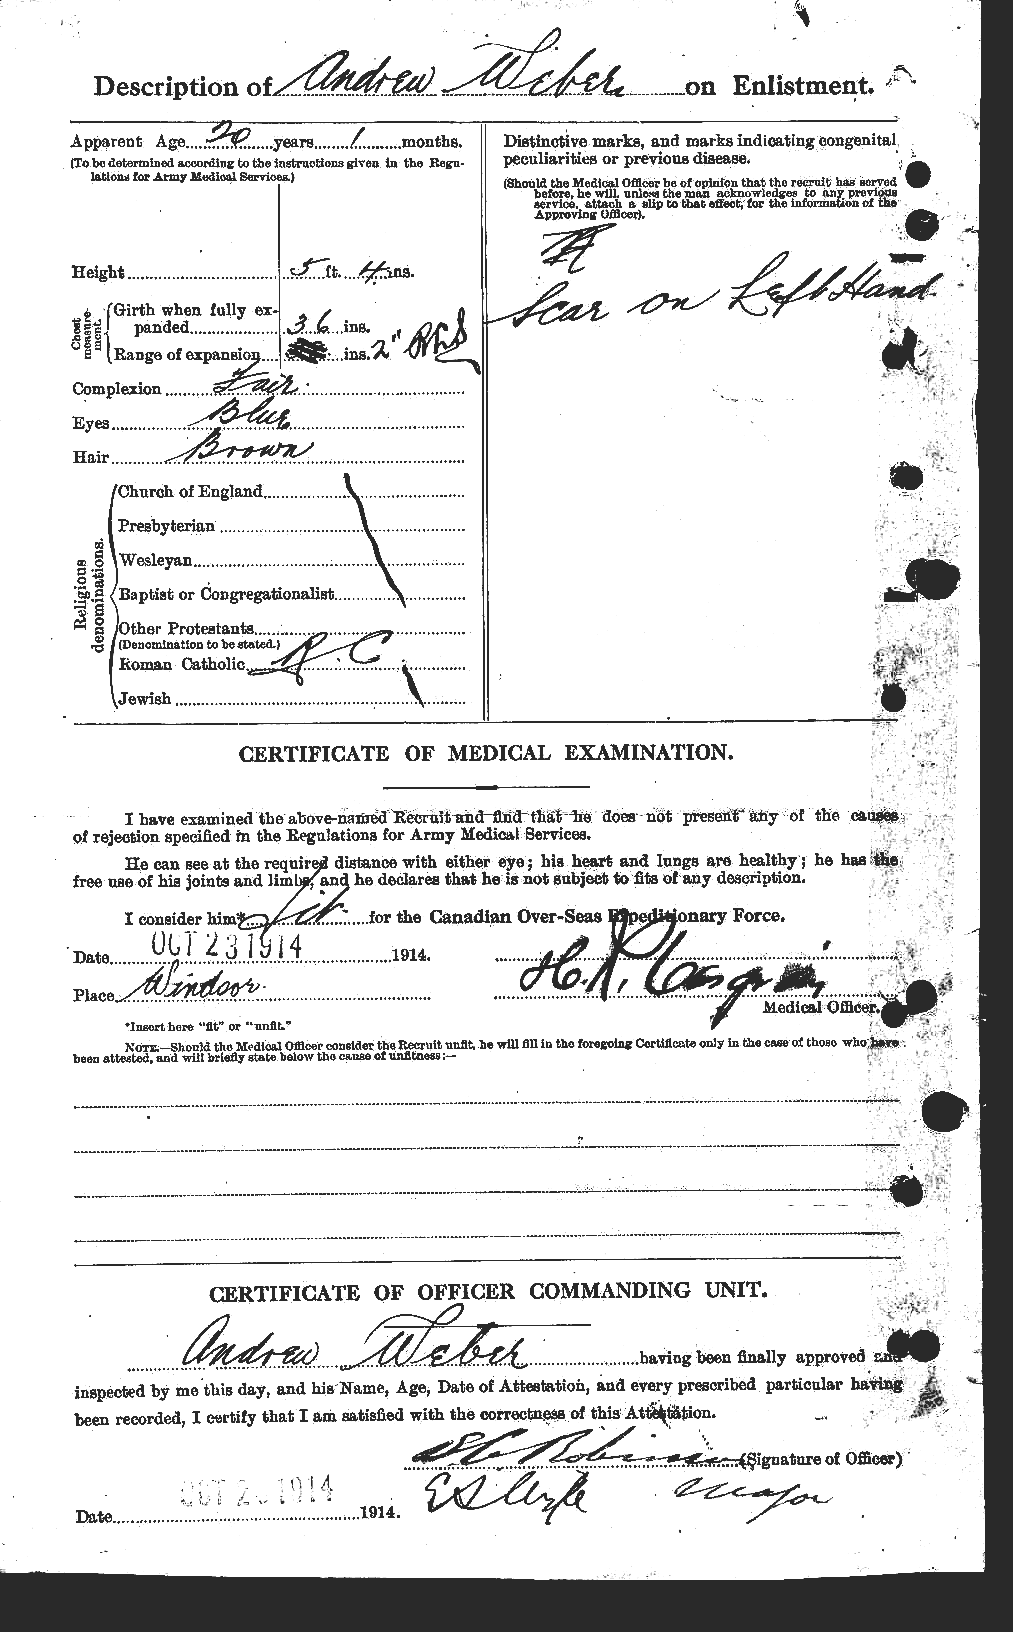 Description of Andrew Weber on Enlistment.
Apparent Age 20 years 1 months.
(To be determined according to the instructions given in the Regu-
lations for Army Medical Services.)
Height 5 ft. 4 ins.
Chest measure-ment.
Girth when fully ex-
panded 36 ins.
Range of expansion ins. 2"
Complexion Fair
Eyes Blue
Hair Brown
Religious denominations.
Church of England
Presbyterian
Wesleyan
Baptist or Congregationalist
Other Protestants
(Denomination to be stated.)
Roman Catholic R.C
Jewish
Distinctive marks, and marks indicating congenital
peculiarities or previous disease.
(Should the Medical Officer be of opinion that the recruit has served
before, he will, unless the man acknowledges to any previous
service, attach a slip to that effect, for the information of the
Approving Officer).
Scar on Left Hand
CERTIFICATE OF MEDICAL EXAMINATION.
I have examined the above-named Recruit and find that he does not present any of the causes
of rejection specified in the Regulations for Army Medical Services.
He can see at the required distance with either eye; his heart and lungs are healthy; he has the
free use of his joints and limbs, and he declares that he is not subject to fits of any description.
I consider him* fit for the Canadian Over-Seas Expeditionary Force.
Date OCT 23 1914 1914.
Place Windsor.
H.R.
Medical Officer.
*Insert here "fit" or "unfit."
NOTE.—Should the Medical Officer consider the Recruit unfit, he will fill in the foregoing Certificate only in the case of those who have
been attested, and will briefly state below the cause of unfitness:—
CERTIFICATE OF OFFICER COMMANDING UNIT.
Andrew Weber having been finally approved and
inspected by me this day, and his Name, Age, Date of Attestation, and every prescribed particular having
been recorded, I certify that I am satisfied with the correctness of this Attestation.
(Signature of Officer)
Major
Date OCT 1914 1914.